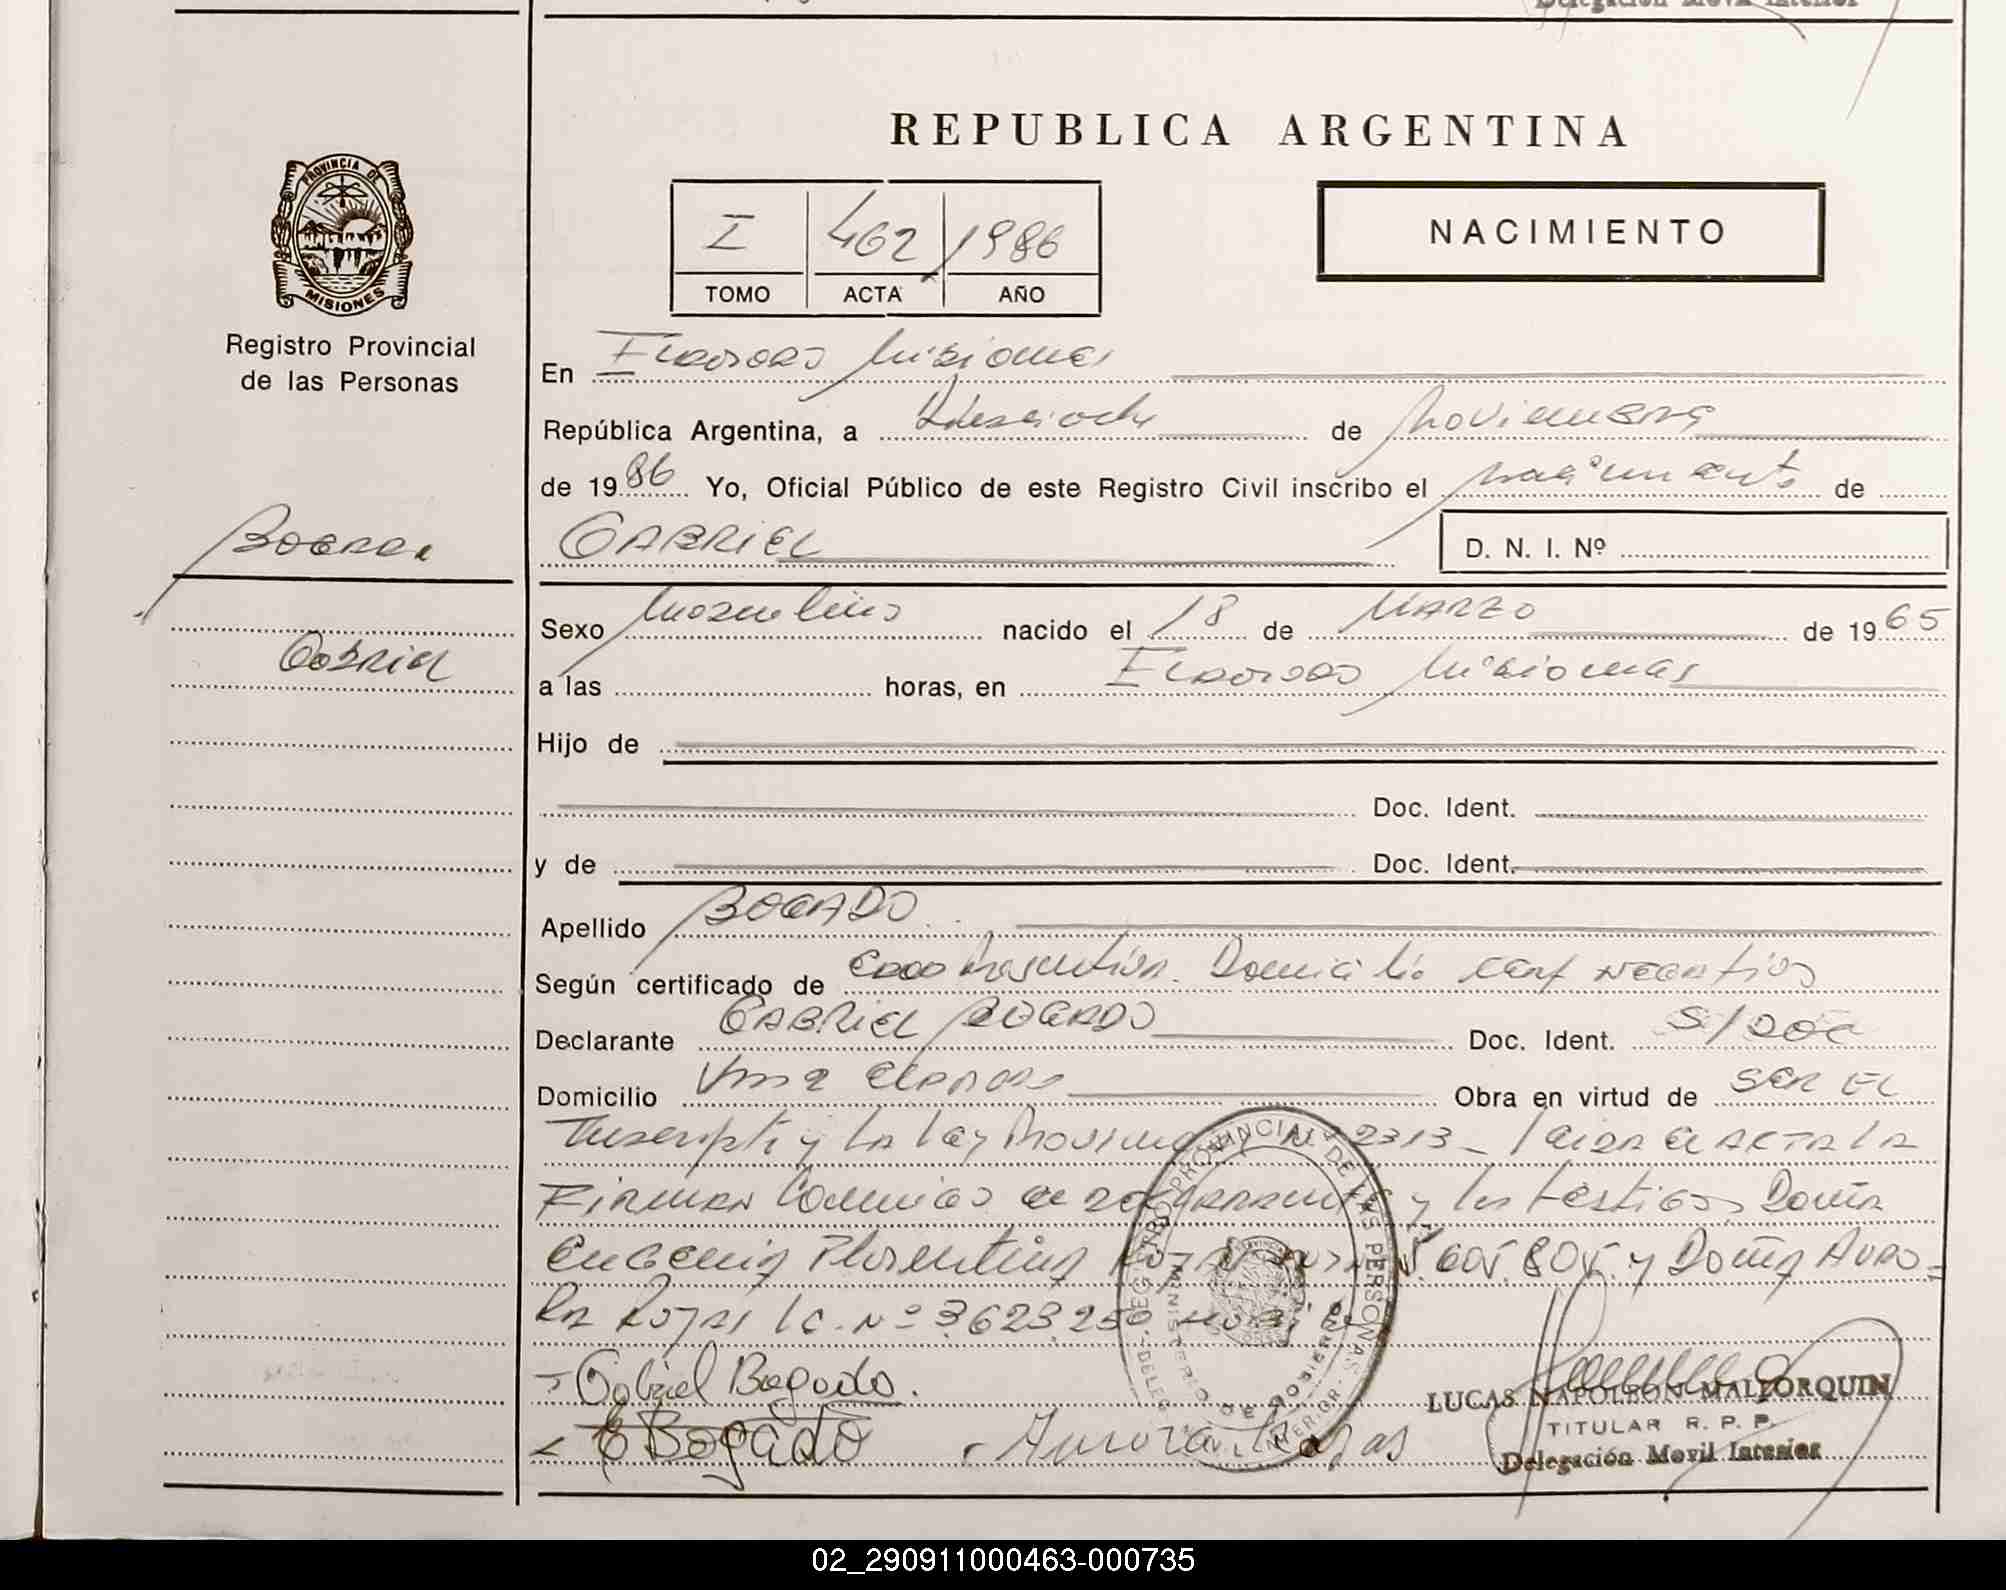 Delegación Movil Interior
REPUBLICA ARGENTINA
PROVINCIA DE
MISIONES
Registro Provincial
de las Personas
I 462 1986
TOMO ACTA AÑO
NACIMIENTO
En Eldorado Misiones
República Argentina, a Dieciocho de Noviembre
de 1986 Yo, Oficial Público de este Registro Civil inscribo el nacimiento de
Bogado
GABRIEL
D. N. I. Nº
Gabriel
Sexo Masculino nacido el 18 de MARZO de 1965
a las horas, en Eldorado Misiones
Hijo de
Doc. Ident.
y de Doc. Ident.
Apellido BOGADO
Según certificado de Domicilio cert negativo
Declarante GABRIEL BOGADO Doc. Ident. S/DOC
Domicilio Obra en virtud de SER EL
Inscripto y la Ley Provincial Nº 2313 - Leida el ACTA LA
Firman Conmigo el declarante y los testigos Doña
Eugenia Florentina 605.805 y Doña Auro-
ra Rojas LC. Nº 3623.250
Gabriel Bogado.
E Bogado Aurora Rojas
REGISTRO PROVINCIAL DE LAS PERSONAS
MINISTERIO DE GOBIERNO
LUCAS NAPOLEON MALLORQUIN
TITULAR R. P. P.
Delegación Movil Interior
02_290911000463-000735